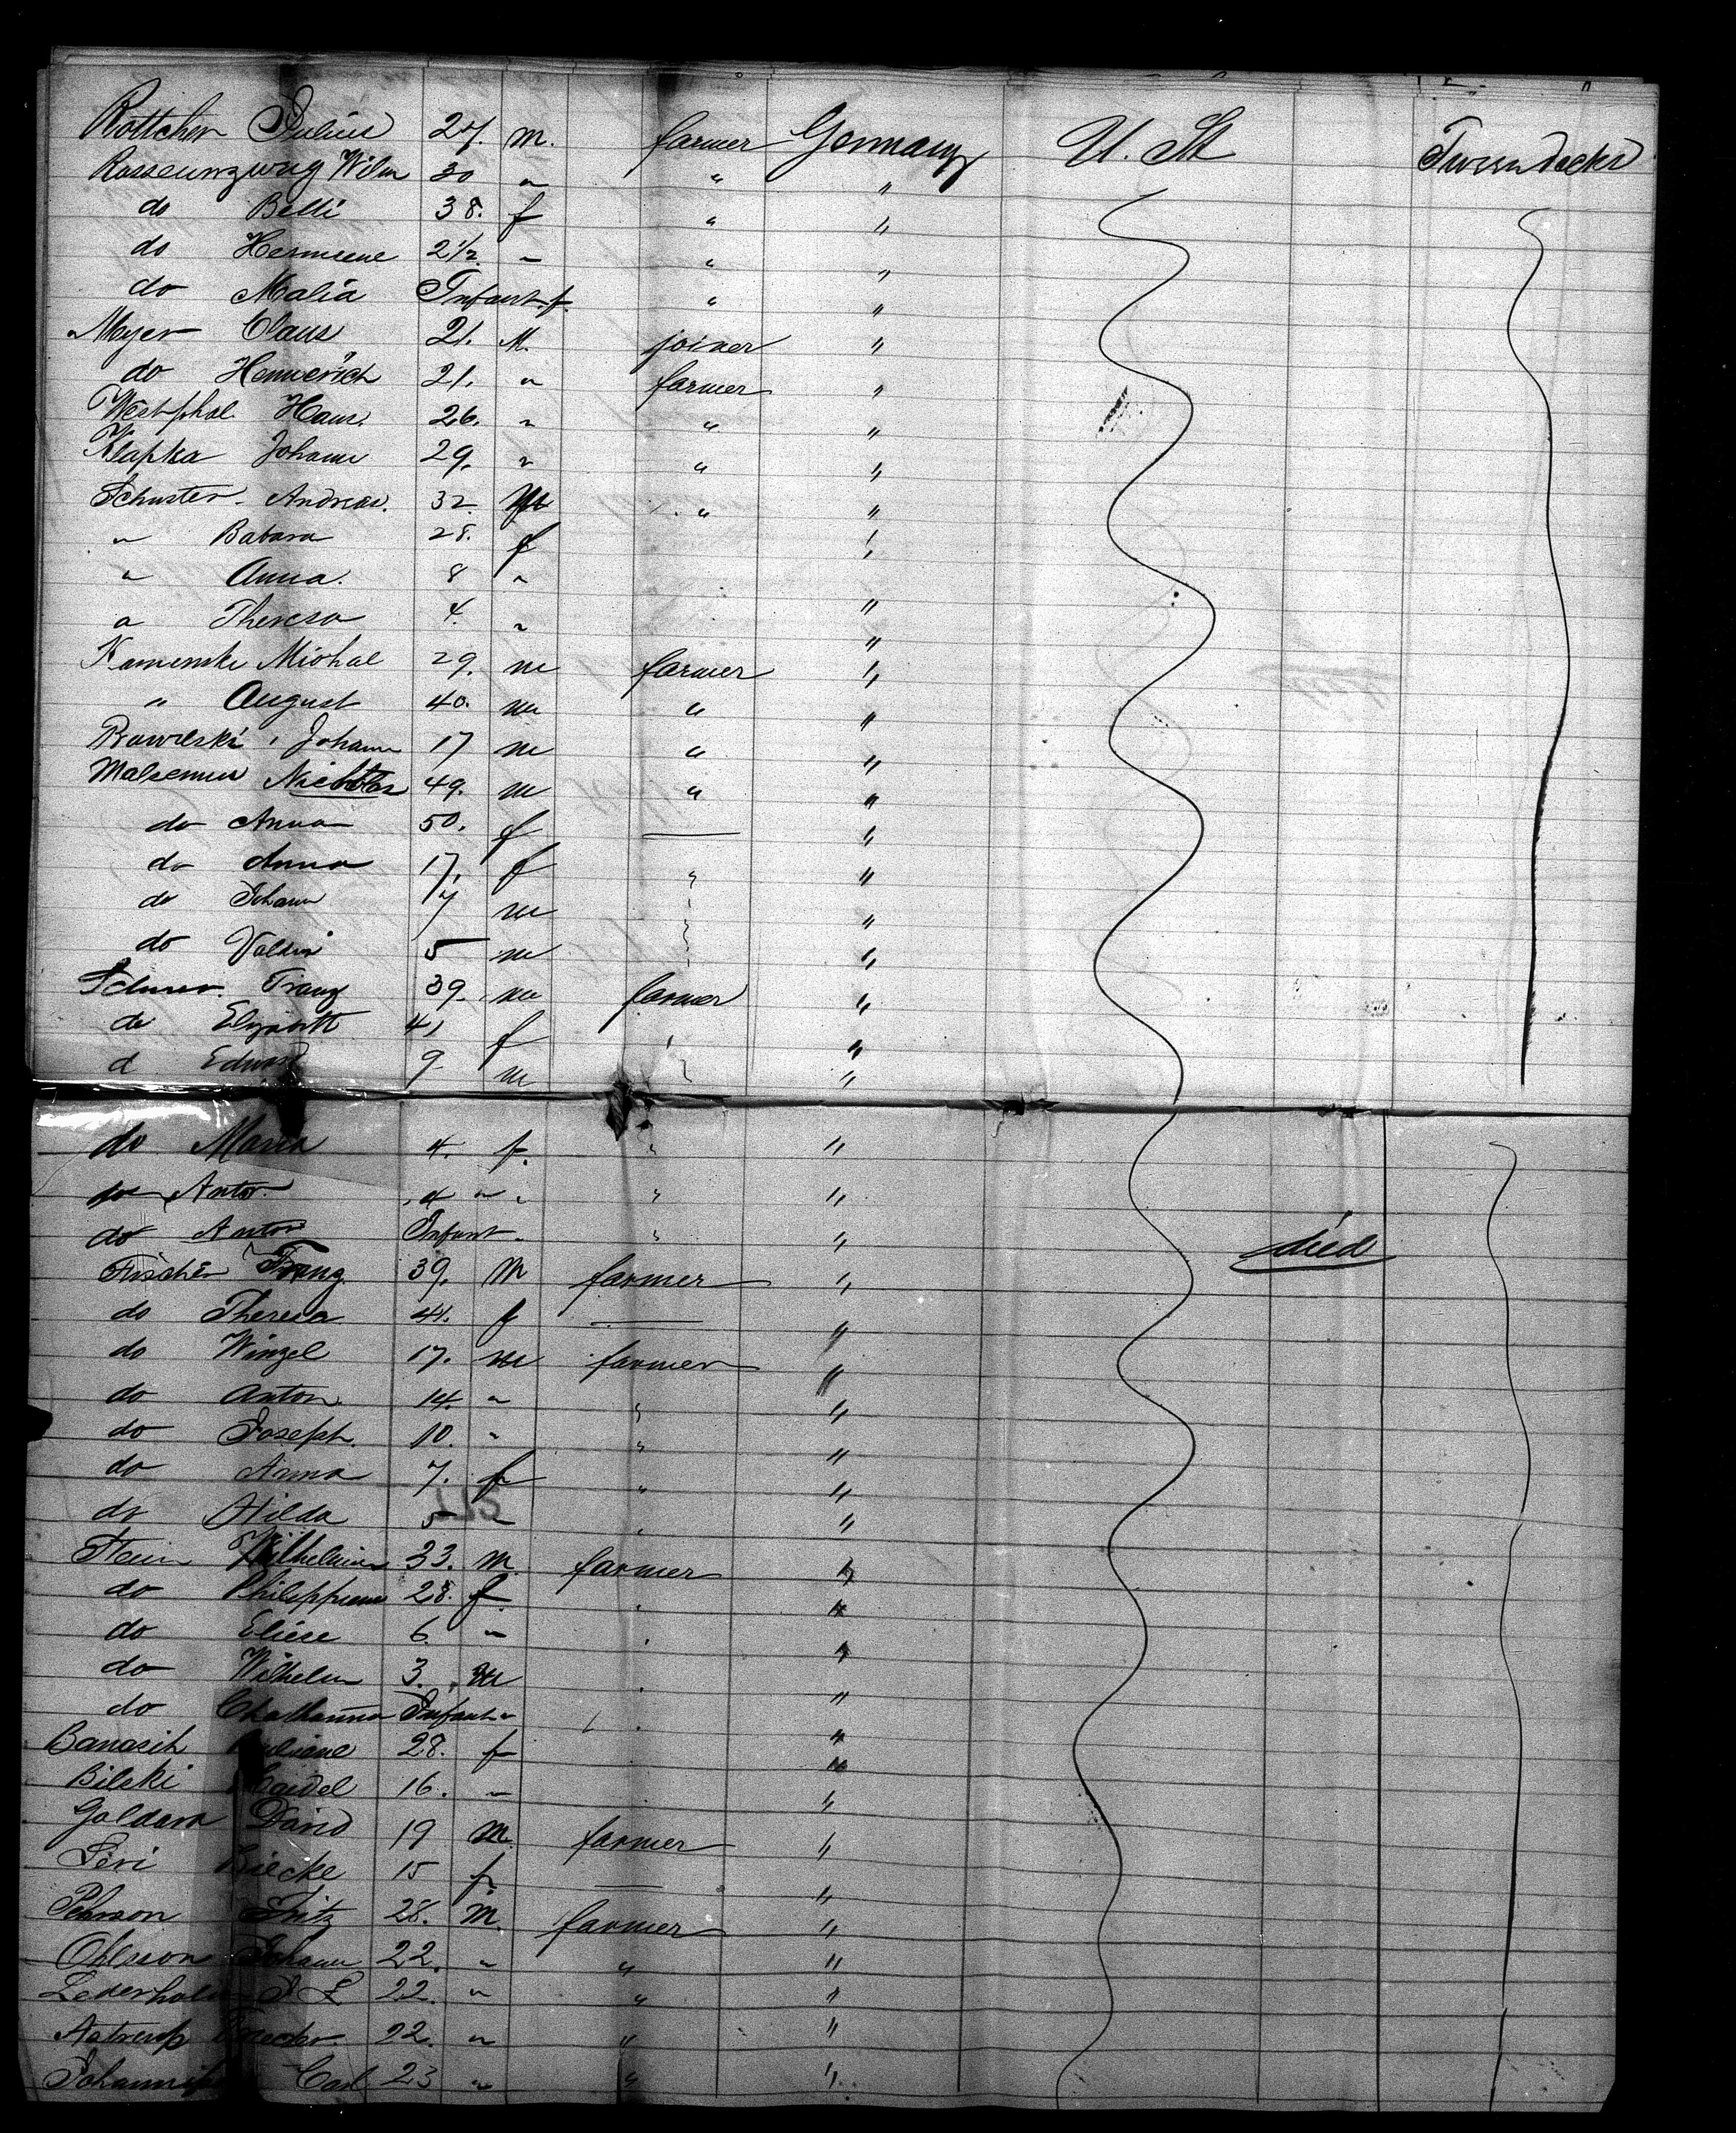 Rottcher Julius 27. m. farmer Germany U. St Tweendecks
Rossennzweig Wilm 30 " " "
do Belli 38. f " "
do Hermiene 2 1/2. " " "
do Malia Infant. f. " "
Mayer Claus 21. M. joiner "
do Hennerich 21. " farmer "
Westphal Hans. 26. " " "
Klapka Johann 29. " " "
Schuster Andreas. 32. M " "
" Babara 28. f "
" Anna. 8 " "
" Theresa 4. " "
Kamenske Michal 29. m farmer "
" August 40. m " "
Johann 17 m " "
Nicolas 49. m " "
do Anna 50. f — "
do Anna 17. f " "
do Johann 7 m " "
do 5 m " "
Franz 39. m farmer "
do Elizabeth 41 f " "
d Eduard 9 m " "
do Maria 4. f. " "
do Anto. 4 " " "
do Anton Infant " " died
Fischer Franz 39. M farmer "
do Theresa 41. f — "
do Winzel 17. m farmer "
do Anton 14. " " "
do Joseph. 10. " " "
do Anna 7. f " "
do Hilda 5 " " "
Stein Wilhelm 33. M. farmer "
do Philippiene 28. f. " "
do Eliese 6. " " "
do Wilhelm 3. M " "
do Infant " " "
Banasik Juliane 28. f "
Bileki 16. " "
David 19 M. farmer "
Levi Riecke 15 f. — "
Pehrson Fritz 28. M. farmer "
Ohlsson Johann 22. " " "
Lederholm 22. " " "
22. " " "
Carl 23 " " "